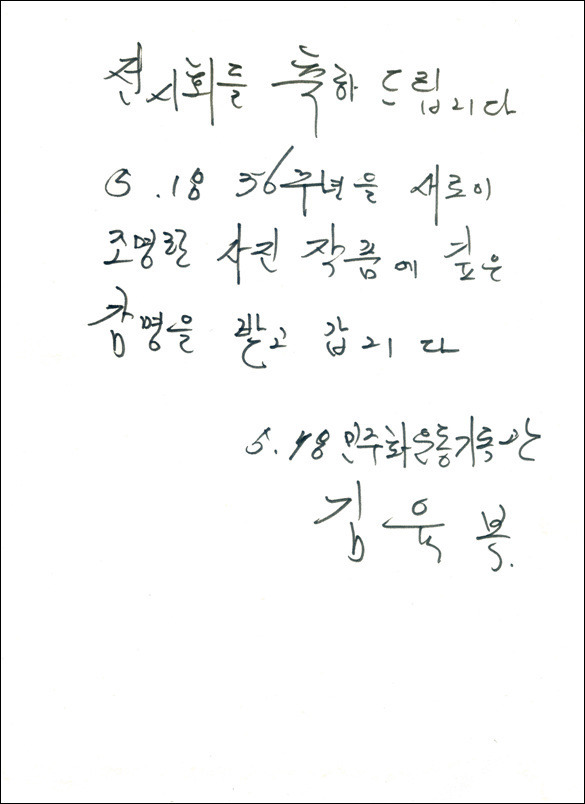 전시회를 축하 드립니다
5.18 36주년을 새로이
조명한 사진 작품에 깊은
감명을 받고 갑니다
5.18 민주화운동기록관
김